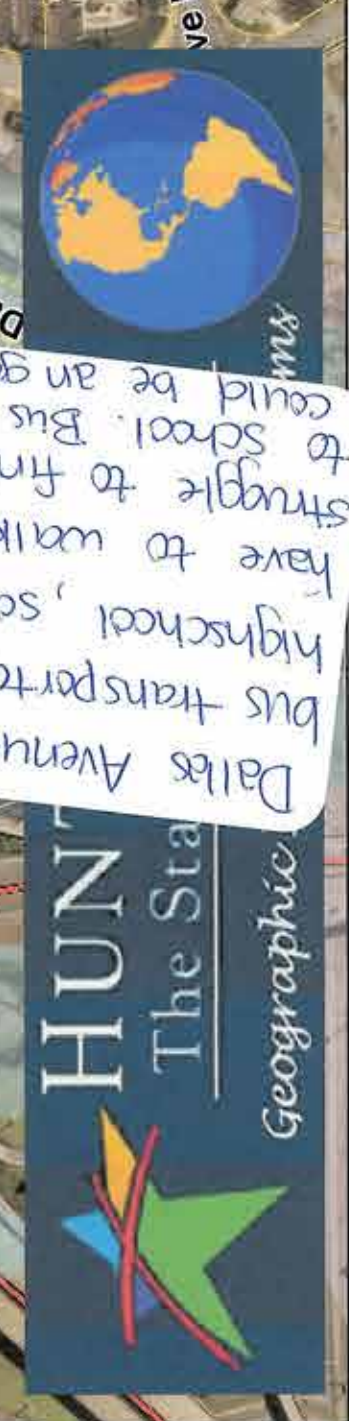 HUNT
The Sta
Geographic
ms
Dallas Avenu
bus transporta
highschool, so
have to walk
struggle to fin
to school. Bus
could be an go
ve